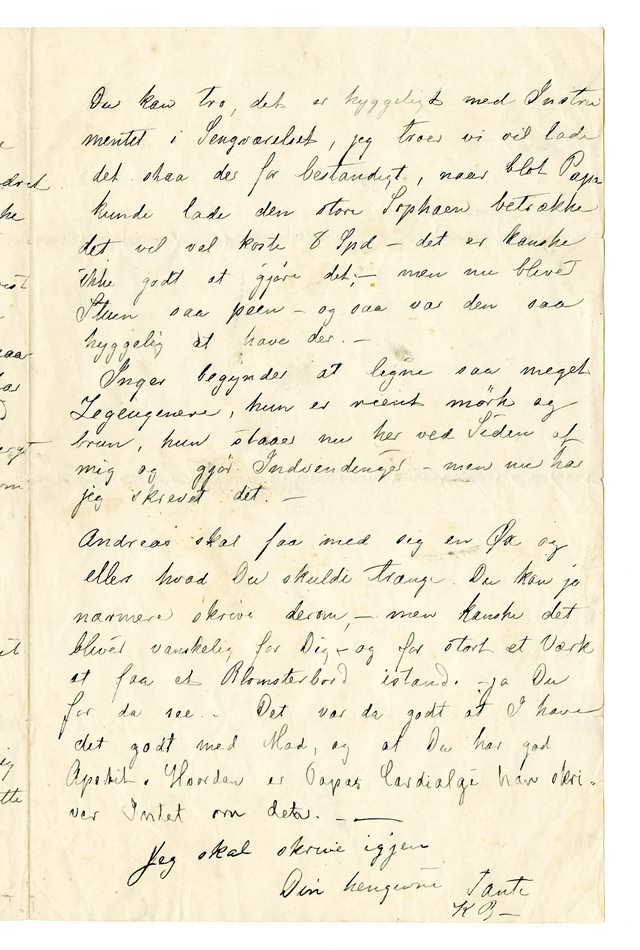 Du kan tro, det er hyggeligt med Instru
mentet i Sengværelset, jeg troer vi vil lade
det staa der for bestandigt, naar blot Papa
kunde lade den store Sophaen betrække
det vil vel koste 8 Spd – det er kanske
ikke godt at gjøre det; – men nu blivet
Stuen saa pæen – og saa var den saa
hyggelig at have der. –
Inger begynder at ligne saa meget
hun er reent mörk og
brun, hun staaer nu her ved Siden af
mig og gjør Indvendinger – men nu har
jeg skrevet det. –
Andreas skal faa med sig en Øx og
ellers hvad Du skulde trænge. Du kan jo
nærmere skrive derom, – men kanske det
bliver vanskelig for Dig – og for stort et Værk
at faa et Blomsterbord istand. – ja Du
for da see. – Det var da godt at I have
det godt med Mad, og at Du har god
Apetit. Hvordan er Papas Cardialgi han skri-
ver Intet om det. –
Jeg skal skrive igjen
Din hengivne Tante
K B –